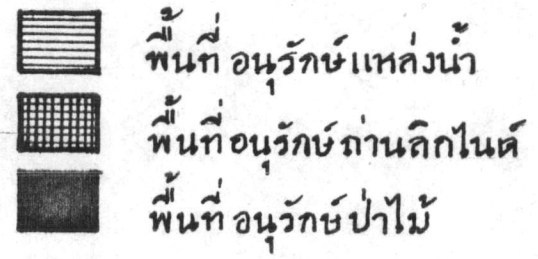 พื้นที่อนุรักษ์แหล่งน้ำ
พื้นที่อนุรักษ์ถ่านลิกไนต์
พื้นที่อนุรักษ์ป่าไม้